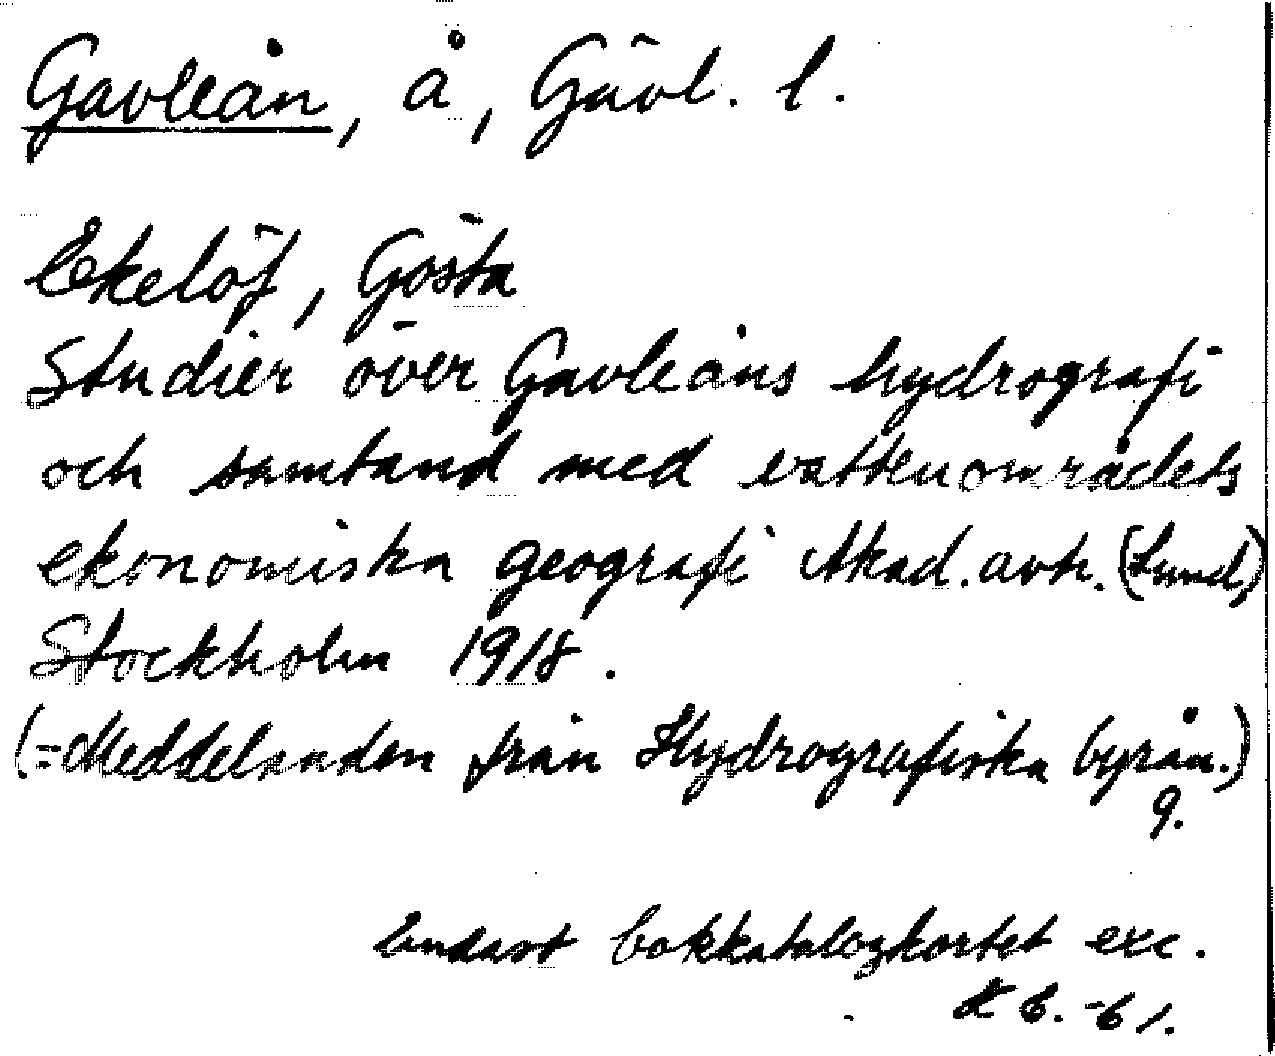 Gavleån, å, Gävl. l.
Ekelöf, Gösta
Studier över Gavleåns hydrografi
och samband med vattenområdets
ekonomiska geografi Akad. avh. (Lund)
Stockholm 1918.
(=Meddelanden från Hydrografiska byrån.)
9.
Endast bokkatalogkortet exc.
6. -61.